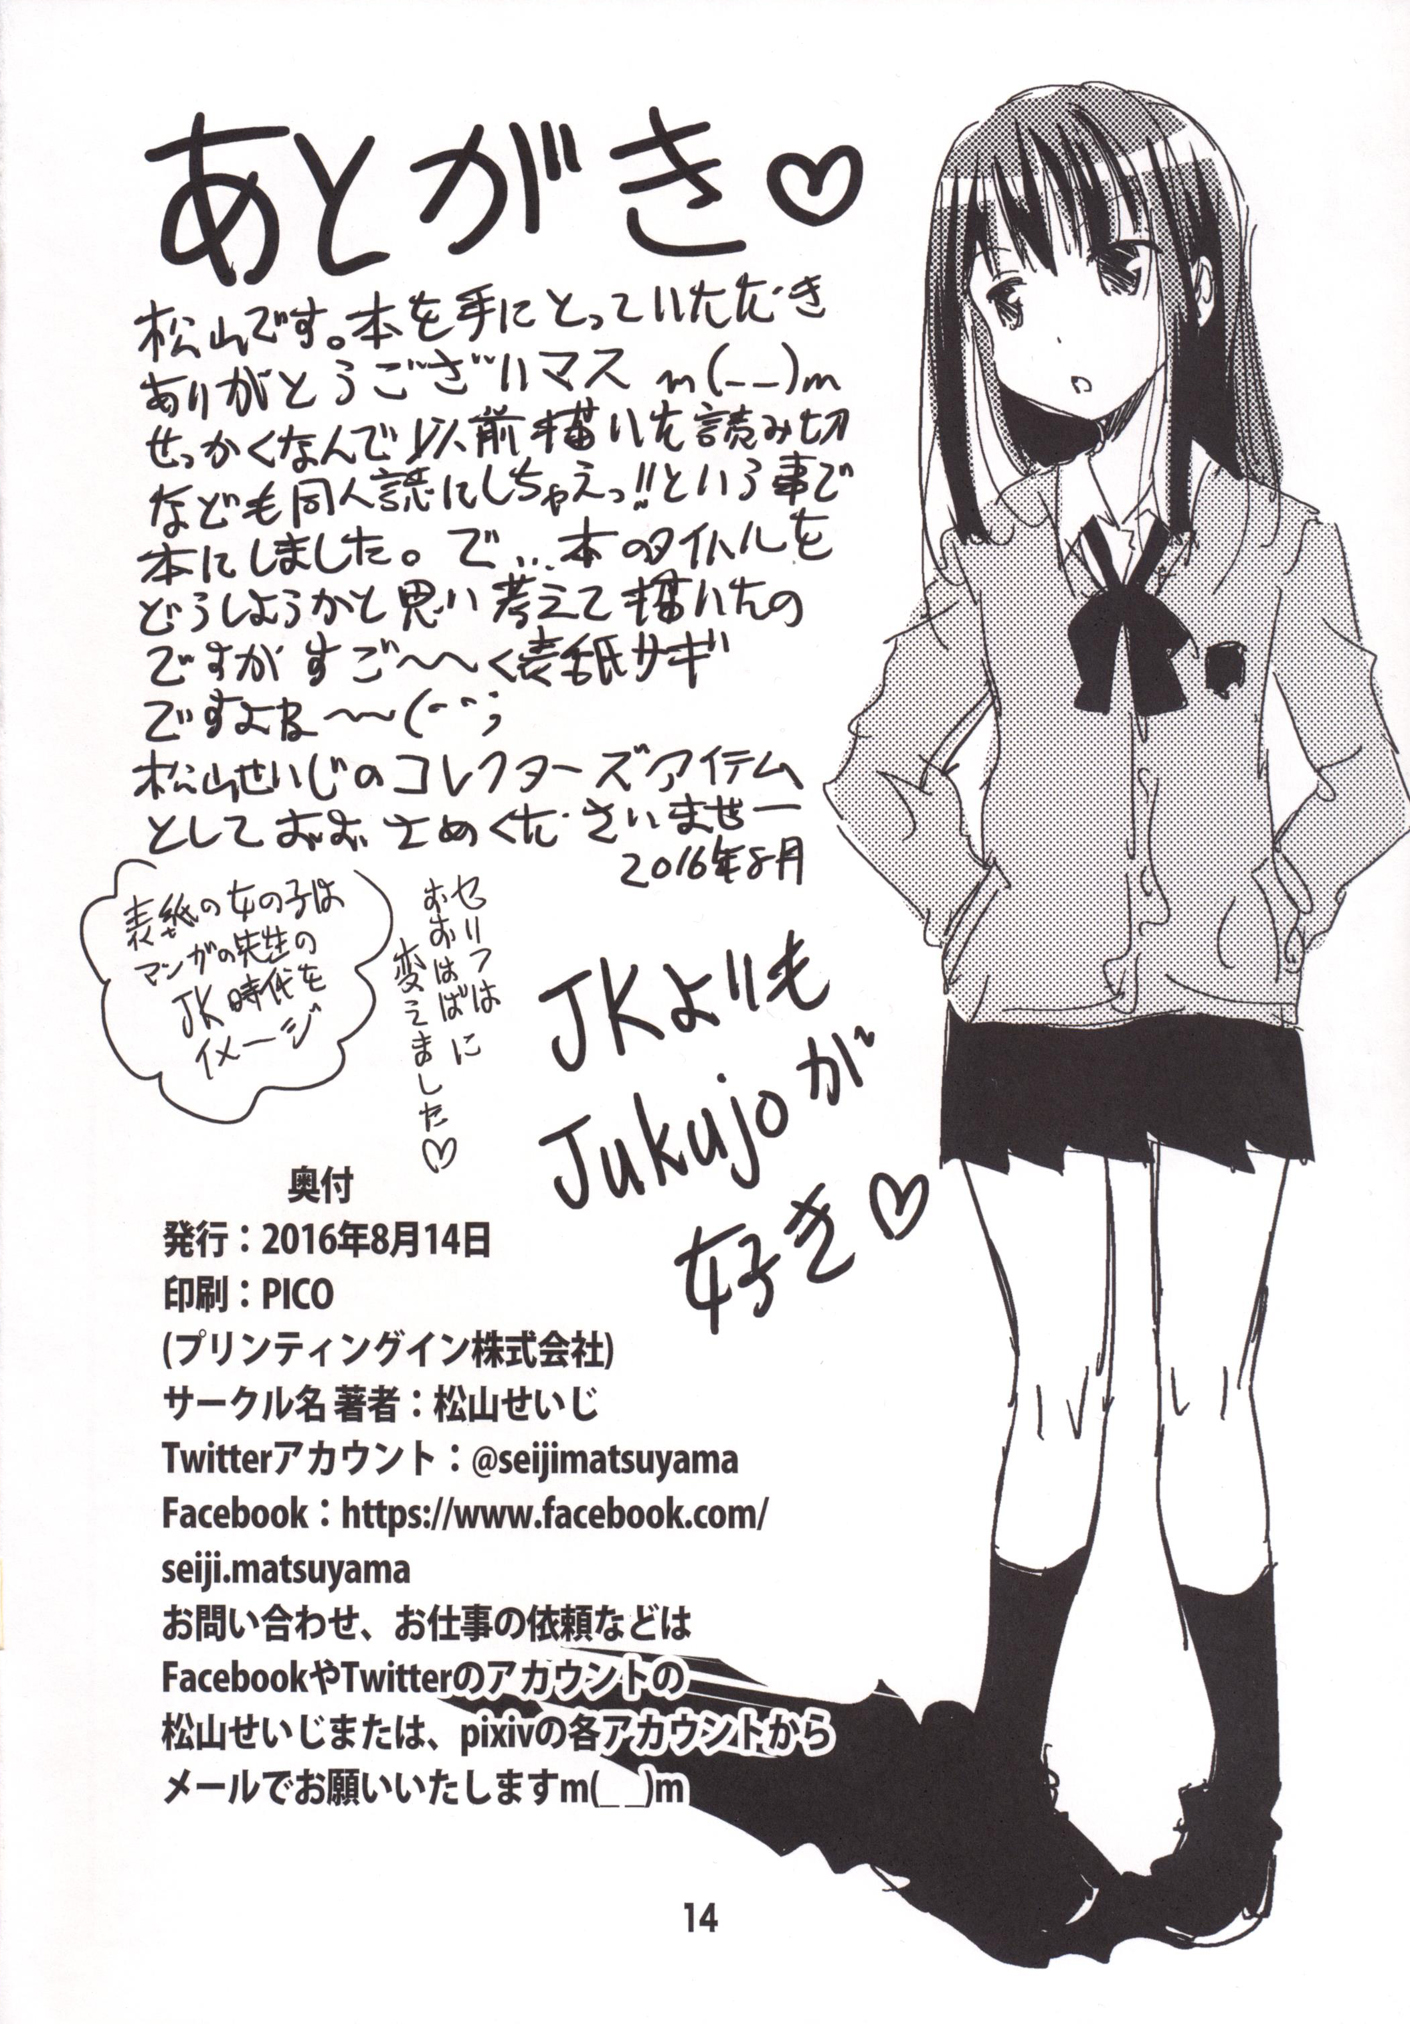 あとがき♡
松山です。本を手にとっていただき
ありがとうございマス m(__)m
せっかくなんで以前描いた読み切
なども同人誌にしちゃえっ!!という事で
本にしました。で…本のタイトルを
どうしようかと思い考えて描いたの
ですが すご〜〜く表紙サギ
ですよね〜〜(--;
松山せいじのコレクターズアイテム
としておおさめくださいませー
2016年8月
表紙の女の子は
マンガの先生の
JK時代を
イメージ
セリフは
おおはばに
変えました♡
JKよりも
Jukujoが
好き♡
奥付
発行：2016年8月14日
印刷：PICO
(プリンティングイン株式会社)
サークル名 著者：松山せいじ
Twitterアカウント：@seijimatsuyama
Facebook：https://www.facebook.com/
seiji.matsuyama
お問い合わせ、お仕事の依頼などは
FacebookやTwitterのアカウントの
松山せいじまたは、pixivの各アカウントから
メールでお願いいたしますm(_ _)m
14